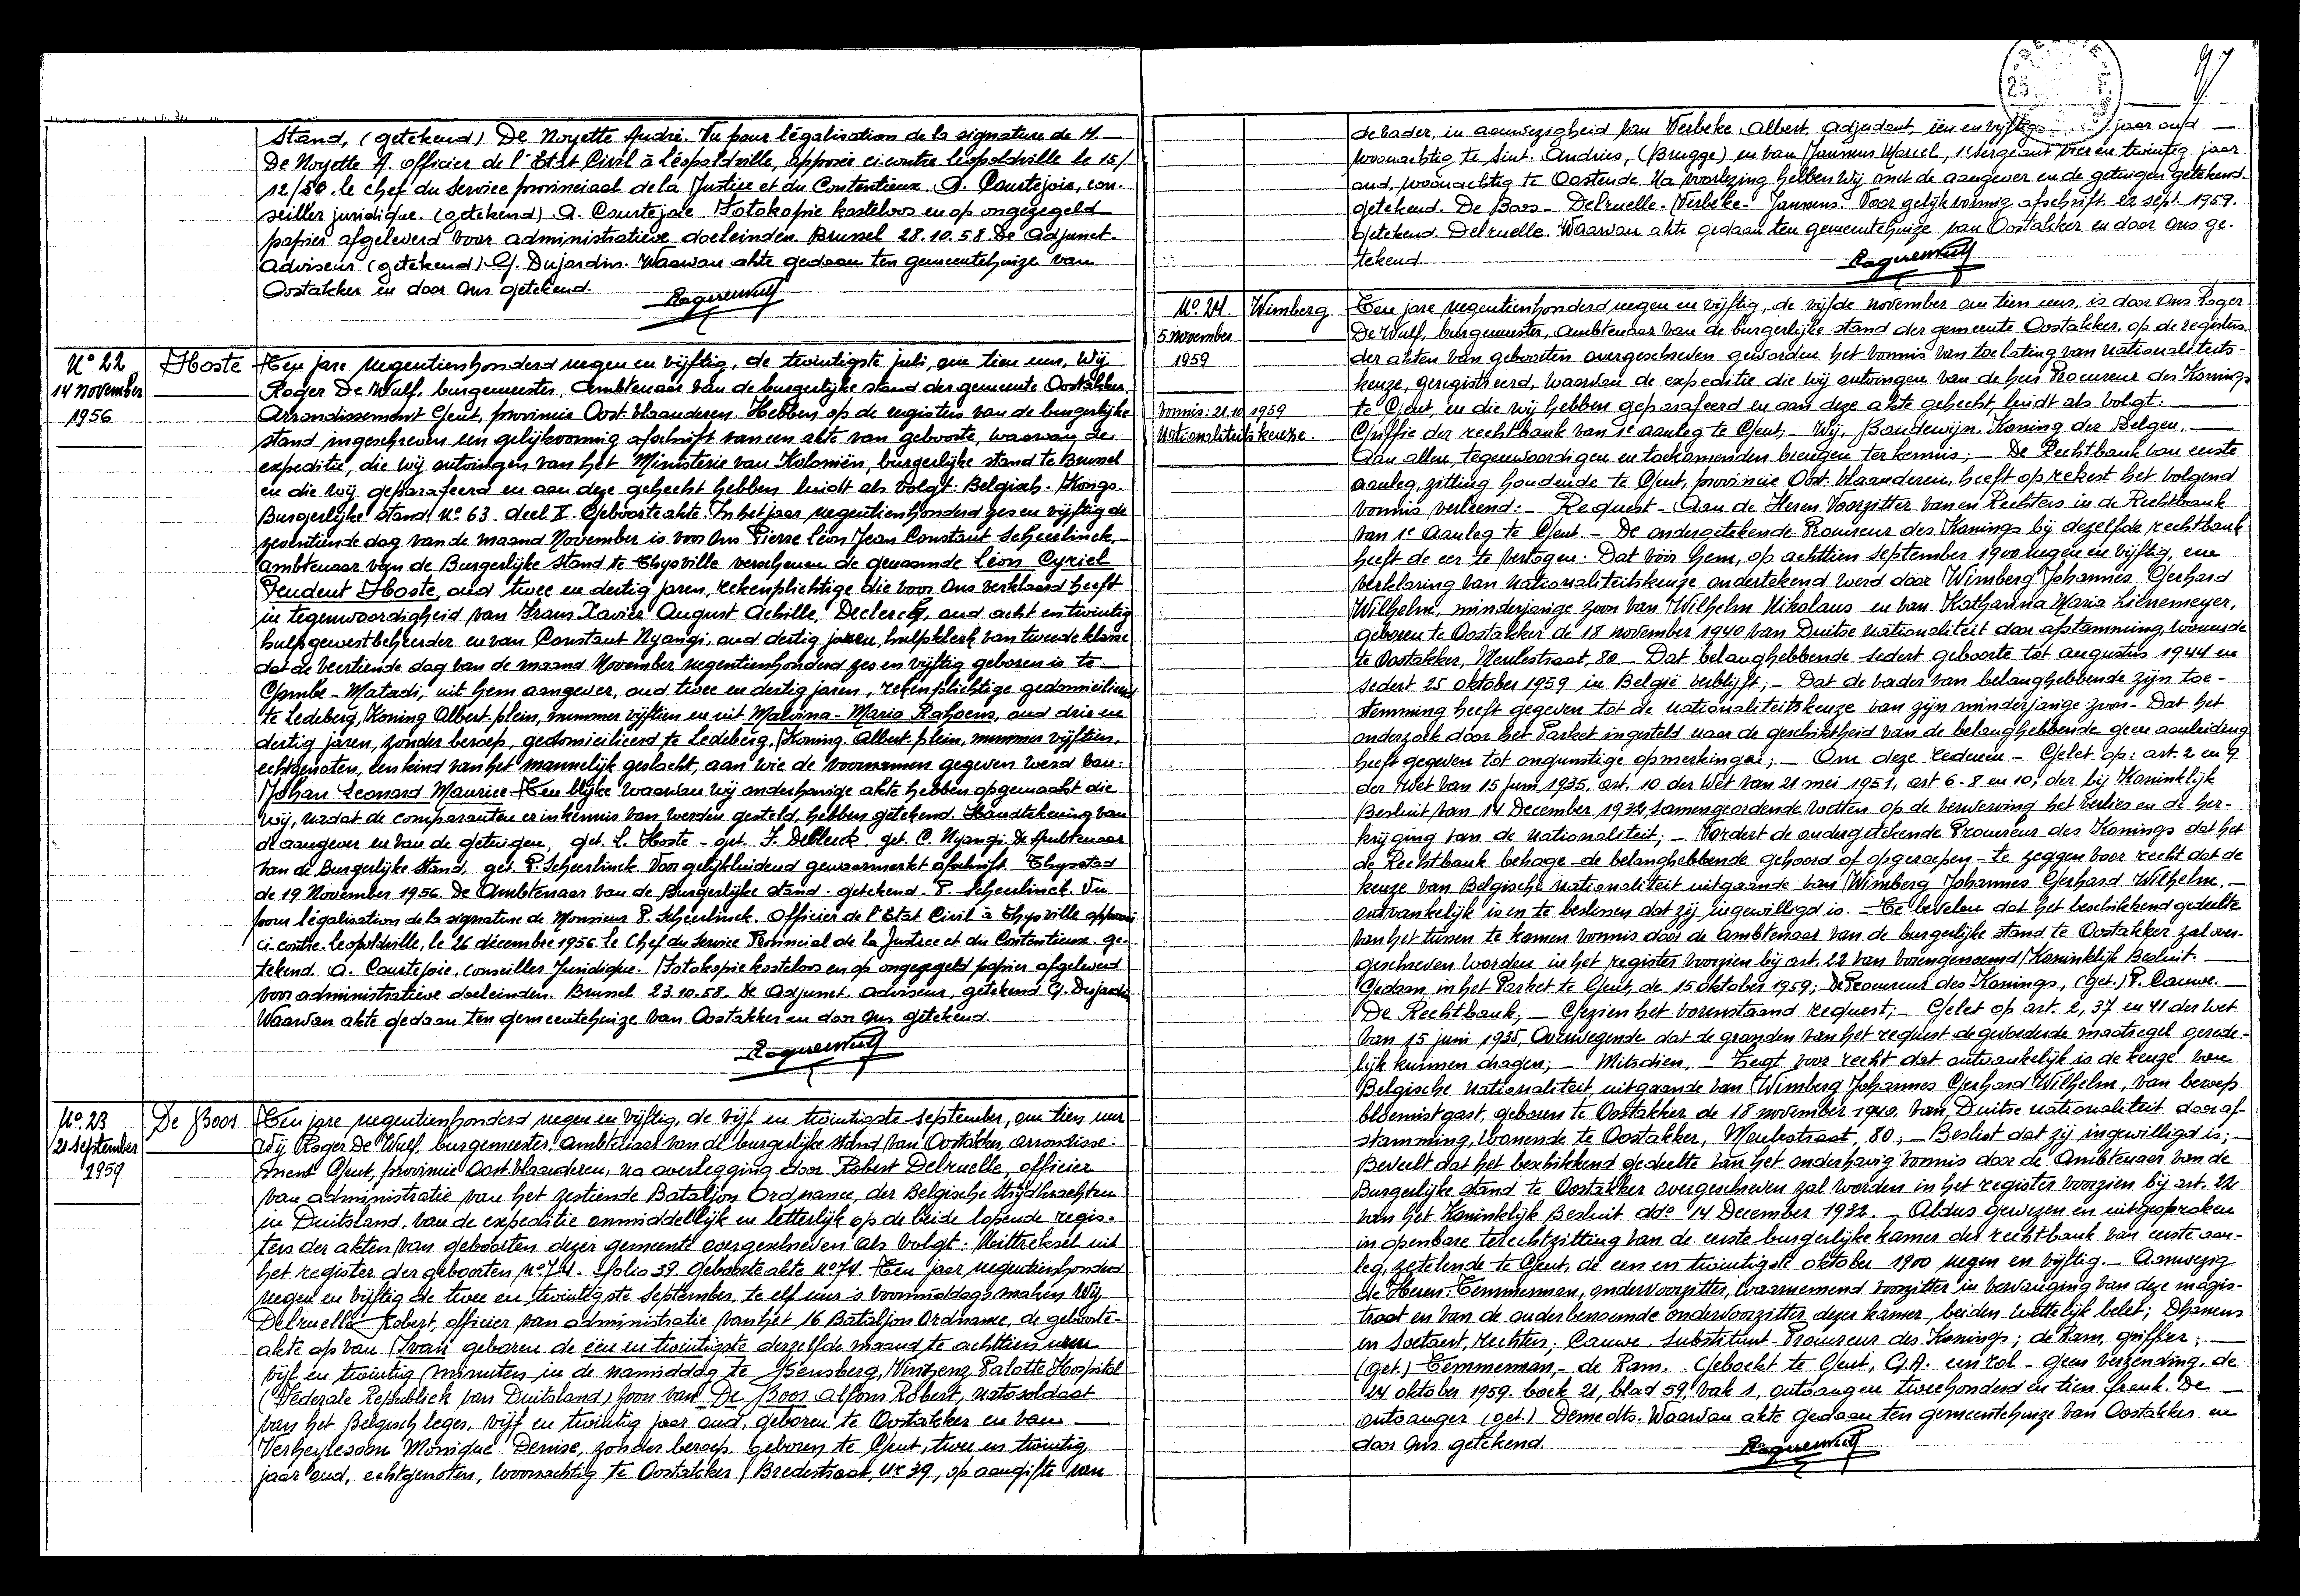 Stand, (getekend) De Noyette André. Vu pour légalisation de la signature de M.
De Noyette A. officier de l'Etat Civil à Léopoldville, apposée ci contre Léopoldville le 15/
12/56. le chef du Service provinciaal de la Justice et du Contentieux. A. Courtejoie, con-
seiller juridique. (getekend) A. Courtejoie Fotokopie kosteloos en op ongezegeld
papier afgeleverd voor administratieve doeleinden. Brussel 28.10.58. De Adjunct-
Adviseur (getekend) G. Dujardin. Waarvan akte gedaan ten gemeentehuize van
Oostakker en door Ons getekend.
Nº 22
14 November
1956
Hoste
Ten jare negentienhonderd negen en vijftig, de twintigste juli, om tien uur, Wij
Roger De Wulf, burgemeester, Ambtenaar van de burgerlijke stand der gemeente Oostakker,
Arrondissement Gent, provincie Oost Vlaanderen. Hebben op de registers van de burgerlijke
stand, ingeschreven een gelijkvormig afschrift van een akte van geboorte, waarvan de
expeditie, die wij ontvingen van het Ministerie van Koloniën, burgerlijke stand te Brussel
en die wij geparafeerd en aan deze gehecht hebben luidt als volgt: Belgisch-Kongo.
Burgerlijke Stand. Nº 63 deel II. Geboorteakte. In het jaar negentienhonderd zes en vijftig de
zeventiende dag van de maand November is voor Ons Pierre Léon Jean Constant Scheerlinck,
ambtenaar van de Burgerlijke Stand te Thysville verschenen de genaamde Léon Cyriel
Prudent Hoste, oud twee en dertig jaren, rekenplichtige die voor Ons verklaard heeft
in tegenwoordigheid van Frans Xavier August Achille, Declercq, oud acht en twintig
hulpgewestbeheerder en van Constant Nyangi, oud dertig jaren, hulpklerk van tweede klasse
dat de veertiende dag van de maand November negentienhonderd zes en vijftig geboren is te
Gombe-Matadi, uit hem aangever, oud twee en dertig jaren, rekenplichtige gedomicilieerd
te Ledeberg, Koning Albert-plein, nummer vijftien en uit Malvina-Maria Rahoens, oud drie en
dertig jaren, zonder beroep, gedomicilieerd te Ledeberg, Koning Albert-plein, nummer vijftien,
echtgenoten, een kind van het mannelijk geslacht, aan wie de voornamen gegeven werd van:
Johan Leonard Maurice. Ten blijke waarvan wij onderhavige akte hebben opgemaakt die
wij, nadat de comparanten er in kennis van werden gesteld, hebben getekend. Handtekening van
de aangever en van de getuigen, get. L. Hoste - get. F. Declerck get. C. Nyangi. De Ambtenaar
van de Burgerlijke Stand, get. P. Scheerlinck. Voor gelijkluidend gewaarmerkt afschrift. Thysstad
de 19 November 1956. De Ambtenaar van de Burgerlijke Stand. getekend. P. Scheerlinck. Vu
pour légalisation de la signature de Monsieur P. Scheerlinck. Officier de l'Etat Civil à Thysville apposée
ci contre. Leopoldville, le 26 décembre 1956. Le Chef du Service Provincial de la Justice et du Contentieux. ge-
tekend. A. Courtejoie, conseiller Juridique. Fotokopie kosteloos en op ongezegeld papier afgeleverd
voor administratieve doeleinden. Brussel 23.10.58. De Adjunct-adviseur, getekend G. Dujardin
Waarvan akte gedaan ten gemeentehuize van Oostakker en door Ons getekend.
Nº 23
21 September
1959
De Boos
Ten jare negentienhonderd negen en vijftig, de vijf en twintigste september, om tien uur
Wij Roger De Wulf, burgemeester, ambtenaar van de burgerlijke stand van Oostakker, arrondisse-
ment Gent, provincie Oost-Vlaanderen, na overlegging door Robert Delruelle, officier
van administratie van het zestiende Bataljon Ordnance, der Belgische Strijdkrachten
in Duitsland, van de expeditie onmiddellijk en letterlijk op de beide lopende regis-
ters der akten van geboorten dezer gemeente overgeschreven als volgt: Uittreksel uit
het register der geboorten nº 74. folio 39. Geboorteakte nº 74. Ten jaar negentienhonderd
negen en vijftig de twee en twintigste September, te elf uur 's voormiddags maken Wij
Delruelle Robert, officier van administratie van het 16 Bataljon Ordnance, de geboorte-
akte op van Ivan geboren de een en twintigste derzelfde maand te achttien uren
vijf en twintig minuten in de namiddag te Bensberg,
(Federale Republiek van Duitsland) zoon van De Boos Alfons Robert, natosoldaat
van het Belgisch leger. vijf en twintig jaar oud, geboren te Oostakker en van
Verheylesoon Monique Denise, zonder beroep, geboren te Gent, twee en twintig
jaar oud, echtgenoten, woonachtig te Oostakker Bredestraat, nr 39, op aangifte van
97
de vader, in aanwezigheid van Verbeke Albert, adjudant, een en vijftig jaar oud
woonachtig te Sint-Andries, (Brugge) en van Janssens Marcel, 1e sergeant vier en twintig jaar
oud, woonachtig te Oostende. Na voorlezing hebben Wij met de aangever en de getuigen getekend.
getekend. De Boos - Delruelle - Verbeke - Janssens. Voor gelijkvormig afschrift 22 sept. 1959.
getekend Delruelle. Waarvan akte gedaan ten gemeentehuize van Oostakker en door Ons ge-
tekend.
Nº 24.
5 november
1959
Vonnis: 21.10.1959
Nationaliteitskeuze.
Wimberg
Ten jare negentienhonderd negen en vijftig, de vijfde november om tien uur, is door Ons Roger
De Wulf, burgemeester, ambtenaar van de burgerlijke stand der gemeente Oostakker, op de registers
der akten van geboorten overgeschreven geworden het vonnis van toelating van nationaliteits-
keuze, geregistreerd, waarvan de expeditie die wij ontvingen van de heer Procureur des Konings
te Gent, en die wij hebben geparafeerd en aan deze akte gehecht, luidt als volgt:
Griffie der rechtbank van 1e aanleg te Gent, - Wij, Boudewijn, Koning der Belgen,
Aan allen, tegenwoordigen en toekomenden brengen ter kennis; - De Rechtbank van eerste
aanleg, zitting houdende te Gent, provincie Oost-Vlaanderen, heeft op rekest het volgend
vonnis verleend: - Request - Aan de Heren Voorzitter van en Rechters in de Rechtbank
van 1e Aanleg te Gent. - De ondergetekende Procureur des Konings bij dezelfde rechtbank
heeft de eer te vertogen: Dat vóór hem, op achttien september 1900 negen en vijftig, ene
verklaring van nationaliteitskeuze ondertekend werd door Wimberg Johannes Gerhard
Wilhelm, minderjarige zoon van Wilhelm Nikolaus en van Katharina Maria Lienemeyer,
geboren te Oostakker de 18 november 1940 van Duitse nationaliteit door afstamming, wonende
te Oostakker, Meulestraat, 80. - Dat belanghebbende sedert geboorte tot augustus 1944 en
sedert 25 oktober 1959 in België verblijft; - Dat de vader van belanghebbende zijn toe-
stemming heeft gegeven tot de nationaliteitskeuze van zijn minderjarige zoon - Dat het
onderzoek door het Parket ingesteld naar de geschiktheid van de belanghebbende geen aanleiding
heeft gegeven tot ongunstige opmerkingen; - Om deze redenen - Gelet op: art. 2 en 9
der Wet van 15 juni 1935, art. 10 der Wet van 21 mei 1951, art 6-8 en 10, der bij Koninklijk
Besluit van 14 December 1932 samengeordende wetten op de verwerving het verlies en de her-
krijging van de nationaliteit; - Vordert de ondergetekende Procureur des Konings dat het
de Rechtbank behage - de belanghebbende gehoord of opgeroepen - te zeggen voor recht dat de
keuze van Belgische nationaliteit uitgaande van Wimberg Johannes Gerhard Wilhelm,
ontvankelijk is en te beslissen dat zij ingewilligd is. - Te bevelen dat het beschikkend gedeelte
van het tussen te komen vonnis door de ambtenaar van de burgerlijke stand te Oostakker zal over-
geschreven worden in het register voorzien bij art. 22 van voiengenoemd Koninklijk Besluit.
Gedaan in het Parket te Gent, de 15 oktober 1959; De Procureur des Konings, (get.) P. Cauwe.
De Rechtbank; - Gezien het vorenstaand request; - Gelet op art. 2, 37 en 41 der wet
van 15 juni 1935, Overwegende dat de gronden van het request de gevorderde maatregel gerede-
lijk kunnen dragen; - Mitsdien, - Zegt voor recht dat ontvankelijk is de keuze van
Belgische nationaliteit, uitgaande van Wimberg Johannes Gerhard Wilhelm, van beroep
bloemistgast, geboren te Oostakker de 18 november 1940, van Duitse nationaliteit door af-
stamming, wonende te Oostakker, Meulestraat, 80; - Beslist dat zij ingewilligd is;
Beveelt dat het beschikkend gedeelte van het onderhavig vonnis door de Ambtenaar van de
Burgerlijke stand te Oostakker overgeschreven zal worden in het register voorzien bij art. 22
van het Koninklijk Besluit ddº 14 December 1932. - Aldus gewezen en uitgesproken
in openbare terechtzitting van de eerste burgerlijke kamer der rechtbank van eerste aan-
leg, zetelende te Gent, de een en twintigste oktober 1900 negen en vijftig. - Aanwezig
de Heren: Temmerman, ondervoorzitter, waarnemend voorzitter in vervanging van deze magis-
traat en van de ouderbenoemde ondervoorzitter dezer kamer, beiden wettelijk belet; Dhanens
en Soetaert, rechters; Cauwe, Substituut-Procureur des Konings; de Ram, griffier;
(get.) Temmerman, - de Ram. Geboekt te Gent, G.A. een rol - geen verzending, de
24 oktober 1959. boek 21, blad 59, vak 1, ontvangen tweehonderd en tien frank. De
ontvanger (get.) Demedts. Waarvan akte gedaan ten gemeentehuize van Oostakker en
door Ons getekend.